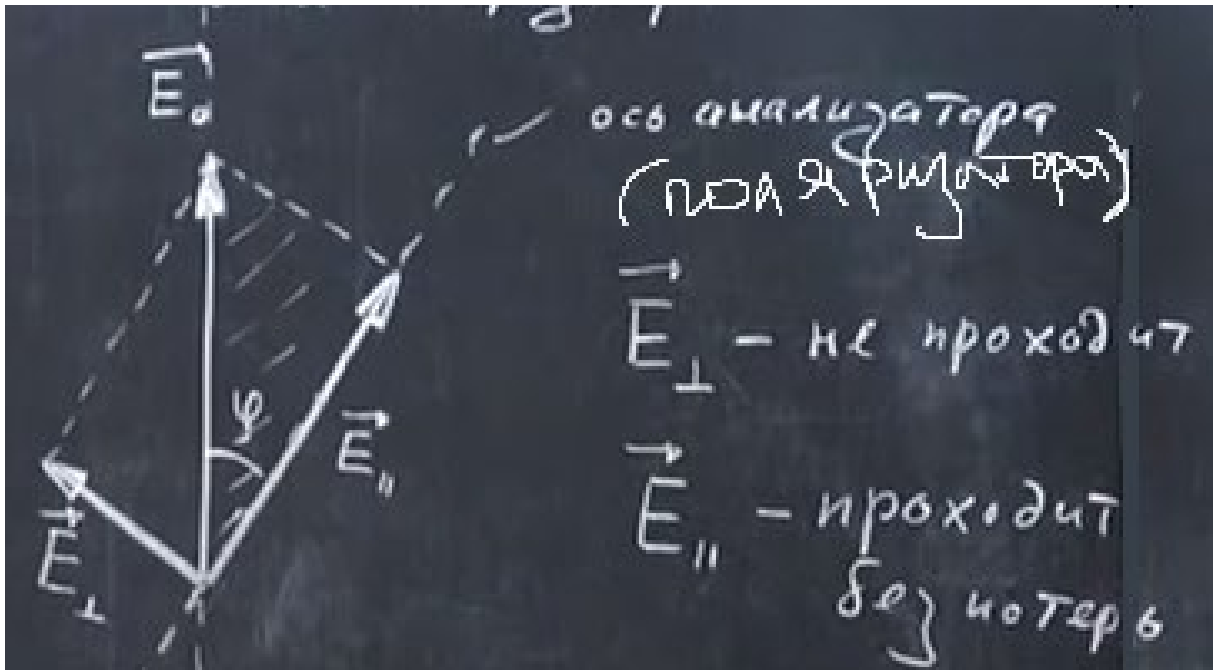 E₀
ось анализатора
(поляризатора)
E⊥ - не проходит
φ
E∥
E∥ - проходит
без потерь
E⊥